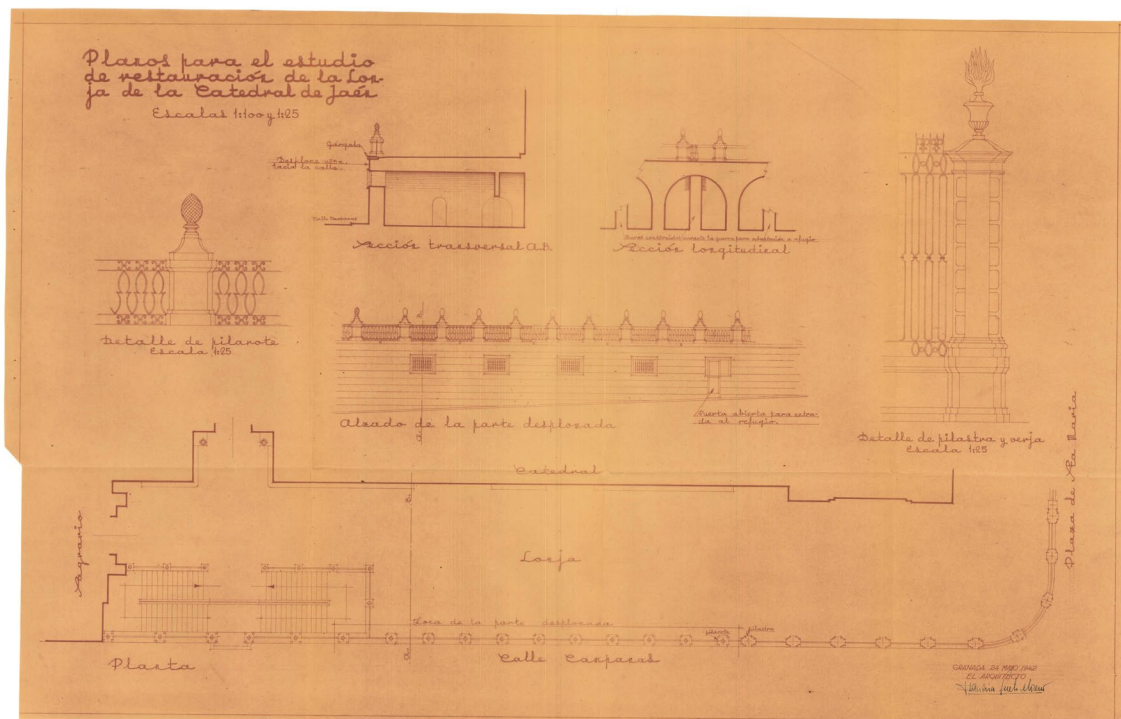 Planos para el estudio
de restauración de la Lon-
ja de la Catedral de Jaén
Escalas 1:100 y 1:25
Gárgola
Desplome
hacia la calle.
Sección transversal A.B.
Muros construidos durante la guerra para adaptación a refugio
Sección longitudinal
Detalle de pilarote
Escala 1:25
Alzado de la parte desplomada
Puerta abierta para entra-
da al refugio.
Detalle de pilastra y verja
Escala 1:25
Catedral
Sagrario
Lonja
Plaza de Sta María
Zona de la parte desplomada
pilarote
pilastra
Planta
Calle Campanas
GRANADA
1942
EL ARQUITECTO